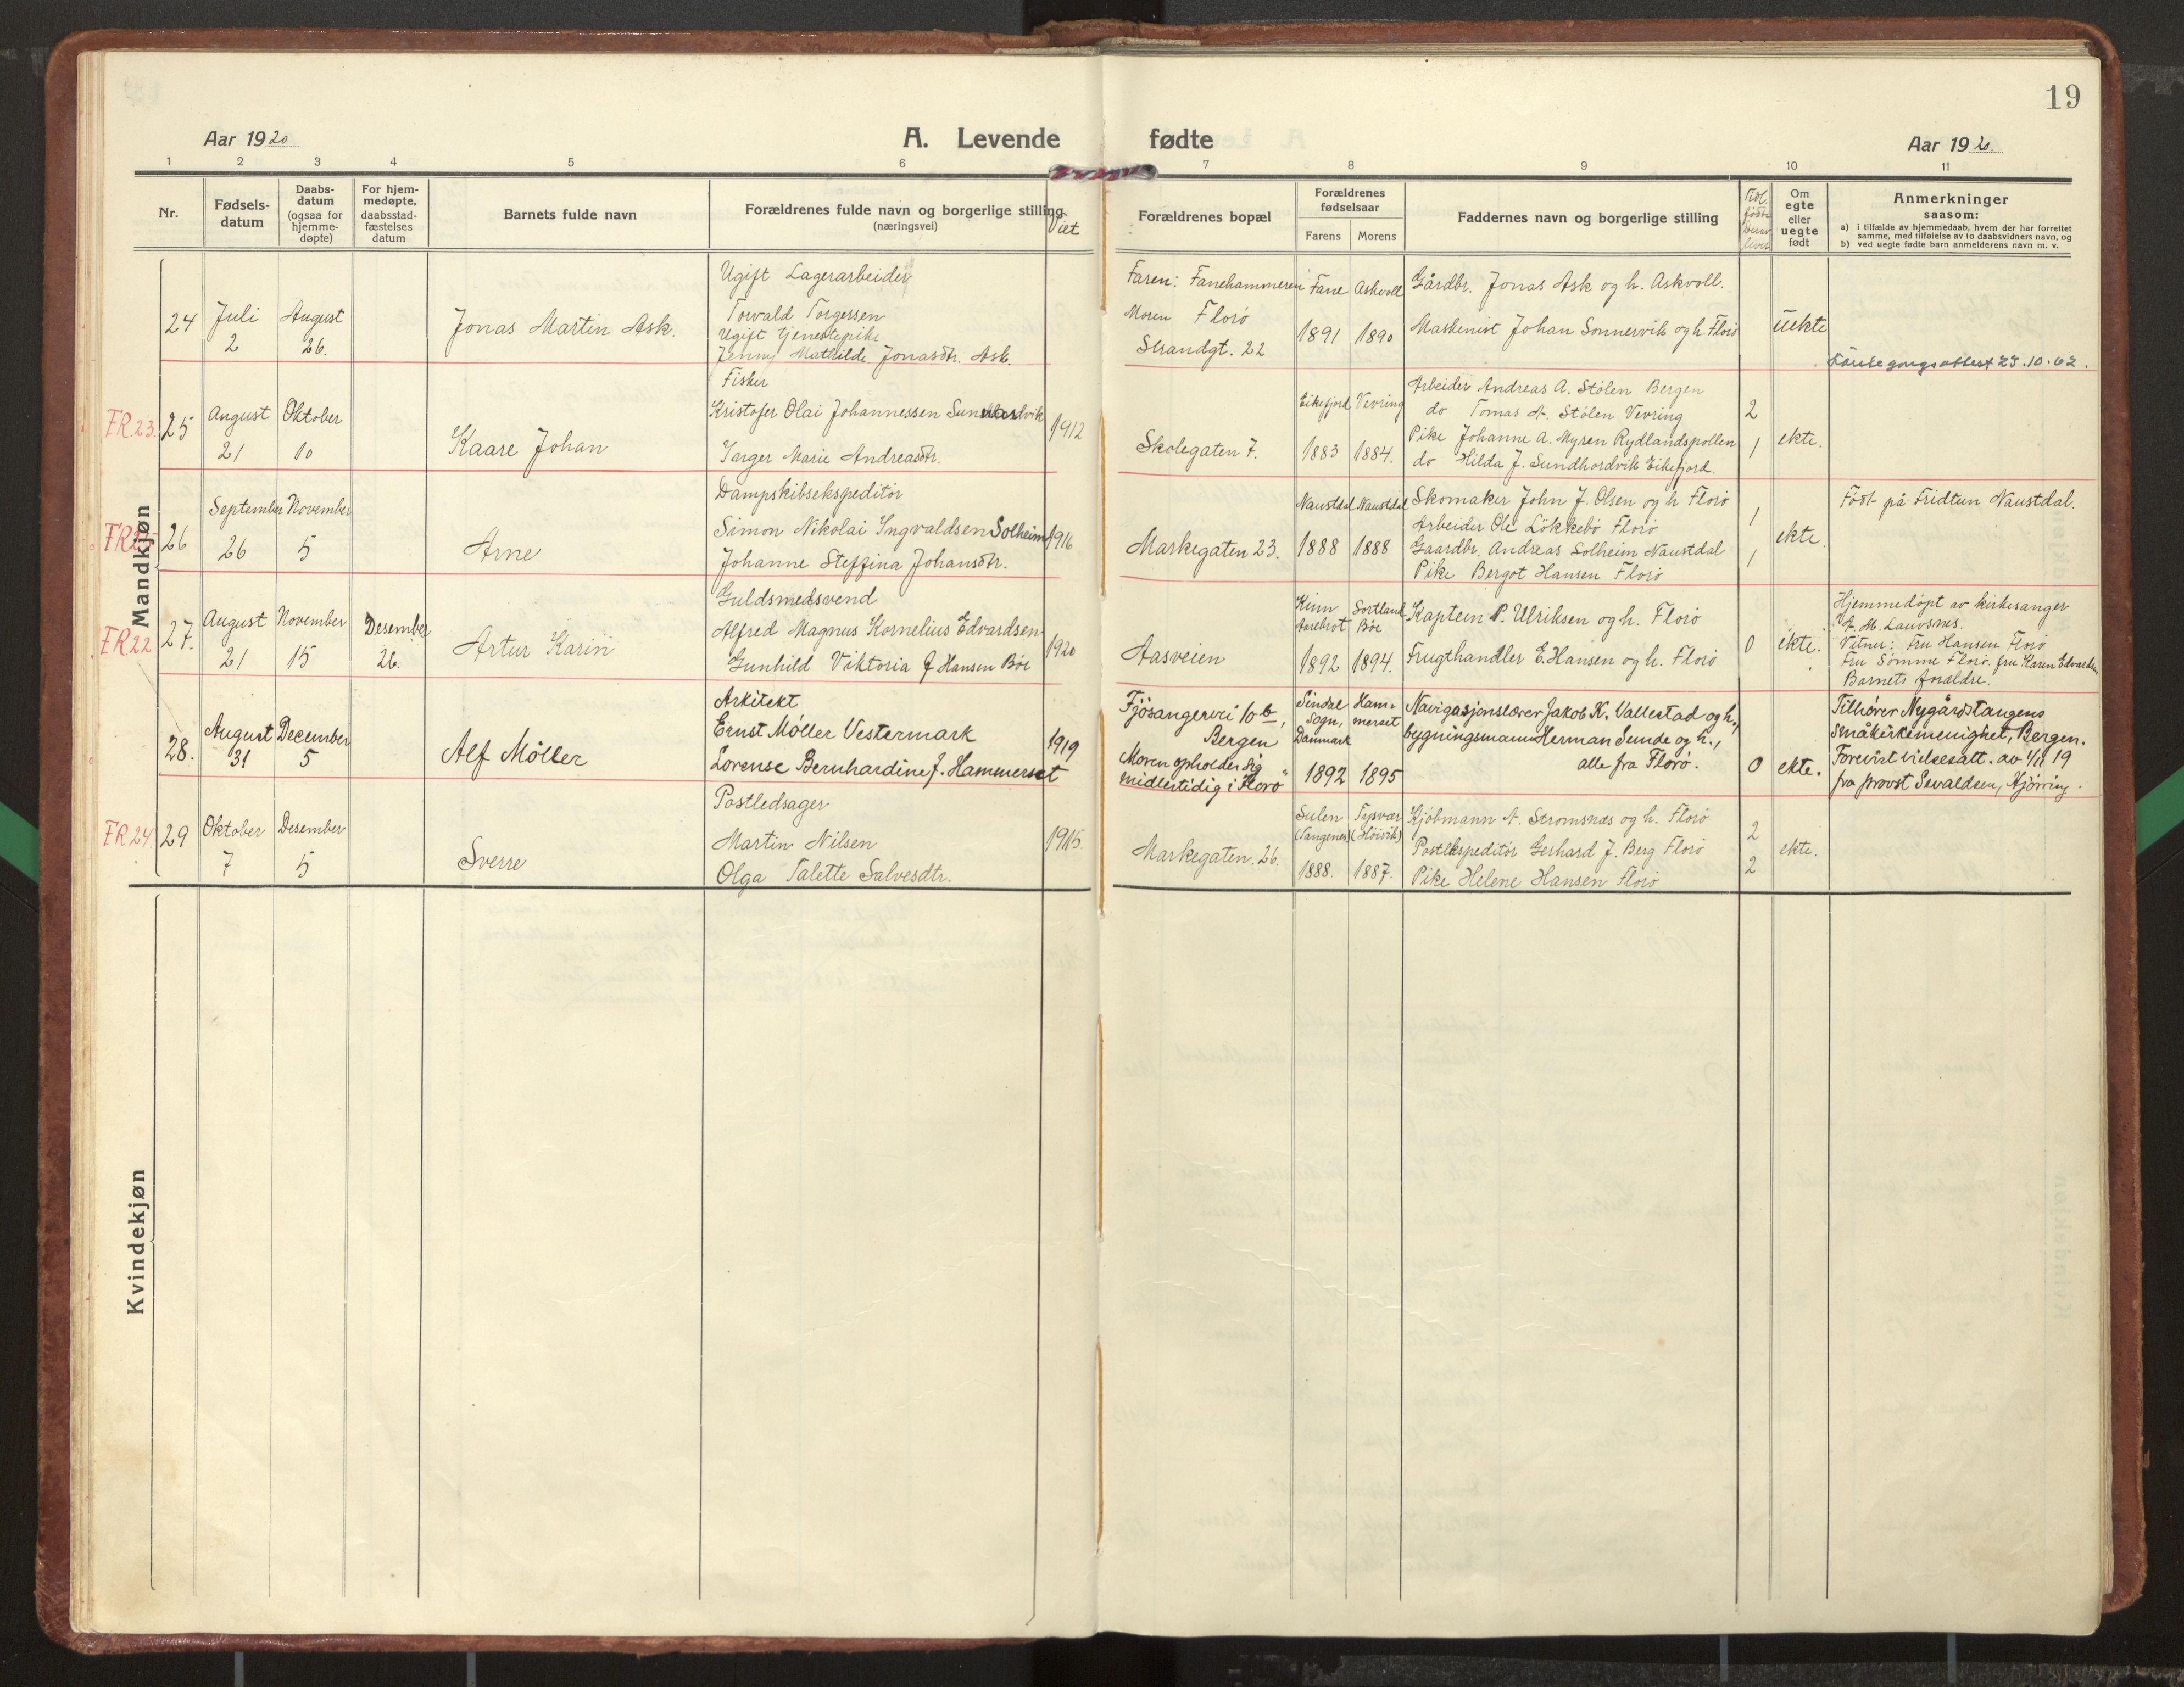 19
Aar 1920
A. Levende fødte
Aar 1920.
1 2 3 4 5 6 7 8 9 10 11
Nr.
Fødsels-
datum
Daabs-
datum
(ogsaa for
hjemme-
døpte)
For hjem-
medøpte,
daabsstad-
fæstelses
datum
Barnets fulde navn
Forældrenes fulde navn og borgerlige stilling
(næringsvei)
Viet
Forældrenes bopæl
Forældrenes
fødselsaar
Farens Morens
Faddernes navn og borgerlige stilling
Om
egte
eller
uegte
født
Anmerkninger
saasom:
a) i tilfælde av hjemmedaab, hvem der har forrettet
samme, med tilføielse av to daabsvidners navn, og
b) ved uegte fødte barn anmelderens navn m. v.
Mandkjøn
24
Juli
2
August
26.
Jonas Martin Ask.
Ugift Lagerarbeider
Torvald Torgersen
Ugift tjenestepike
Jenny Mathilde Jonasdtr. Ask.
Faren: Fanehammeren
Moren Florö
Strandgt. 22
Fane
1891
Askvoll
1890
Gårdbr. Jonas Ask og h. Askvoll.
Maskenist Johan Sonnervik og h. Florö
uekte
25.10.62.
FR.23.
25
August
21
Oktober
10
Kaare Johan
Fisker
Kristofer Olai Johannessen Sundhordvik
Inger Marie Andreasdtr.
1912
Skolegaten 7.
Eikefjord
1883
Vevring
1884.
Arbeider Andreas A. Stölen Bergen
do Tomas A. Stölen Vevring
Pike Johanne A. Myren Rydlandspollen
do Hilda J. Sundhordvik Eikefjord.
2
1
ekte.
26
September
26
November
5
Arne
Dampskibsekspeditör
Simon Nikolai Ingvaldsen Solheim
Johanne Steffina Johansdtr.
1916
Markegaten 23.
Naustdal
1888
Naustdal
1888
Skomaker John J. Olsen og h Florö
Arbeider Ole Lökkebö Florö
Gaardbr. Andreas Solheim Naustdal
Pike Bergot Hansen Florö
1
1
ekte.
Födt på Fridtun Naustdal.
FR22
27.
August
21
November
15
Desember
26.
Artur Karin
Guldsmedsvend
Alfred Magnus Kornelius Edvardsen
Gunhild Viktoria f Hansen Böe
1920
Aasveien
Kinn
Aarebrot
1892
Sortland
Böe
1894.
Kaptein P. Ulriksen og h. Florö
Frugthandler E. Hansen og h. Florö
0
ekte.
Hjemmedöpt av kirkesanger
A. M. Lauvsnes.
Vitner: Fru Hansen Florö
Fru Sömme Florö. fru Karen Edvardsen
Barnets forældre.
28.
August
31
December
5
Alf Møller
Arkitekt
Ernst Møller Vestermark
Lorense Bernhardine f. Hammerset
1919
Fjøsangervei 10b,
Bergen
Moren opholder sig
midlertidig i Florø
Sindal
Sogn,
Danmark
1892
Ham=
merset
1895
Navigasjonslærer Jakob K. Vallestad og h.,
bygningsmann Herman Sunde og h.,
alle fra Florø.
0
ekte.
Tilhører Nygårdstangens
småkirkemenighet, Bergen.
Forevist vielsesatt. av 1/11 19
fra provst Sevaldsen, Hjørring.
FR24.
29
Oktober
7
Desember
5
Sverre
Postledsager
Martin Nilsen
Olga Talette Salvesdtr.
1915.
Markegaten. 26.
Sulen
(Tangenes)
1888.
Tysvær
(Höivik)
1887.
Kjöbmann A. Strömsnæs og h. Florö
Postekspeditör Gerhard J. Berg Florö
Pike Helene Hansen Florö
2
2
ekte.
Kvindekjøn